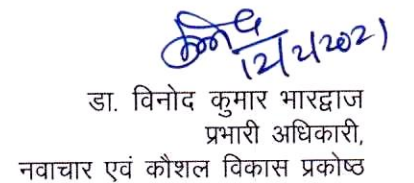 12/2/2021
डा. विनोद कुमार भारद्वाज
प्रभारी अधिकारी,
नवाचार एवं कौशल विकास प्रकोष्ठ